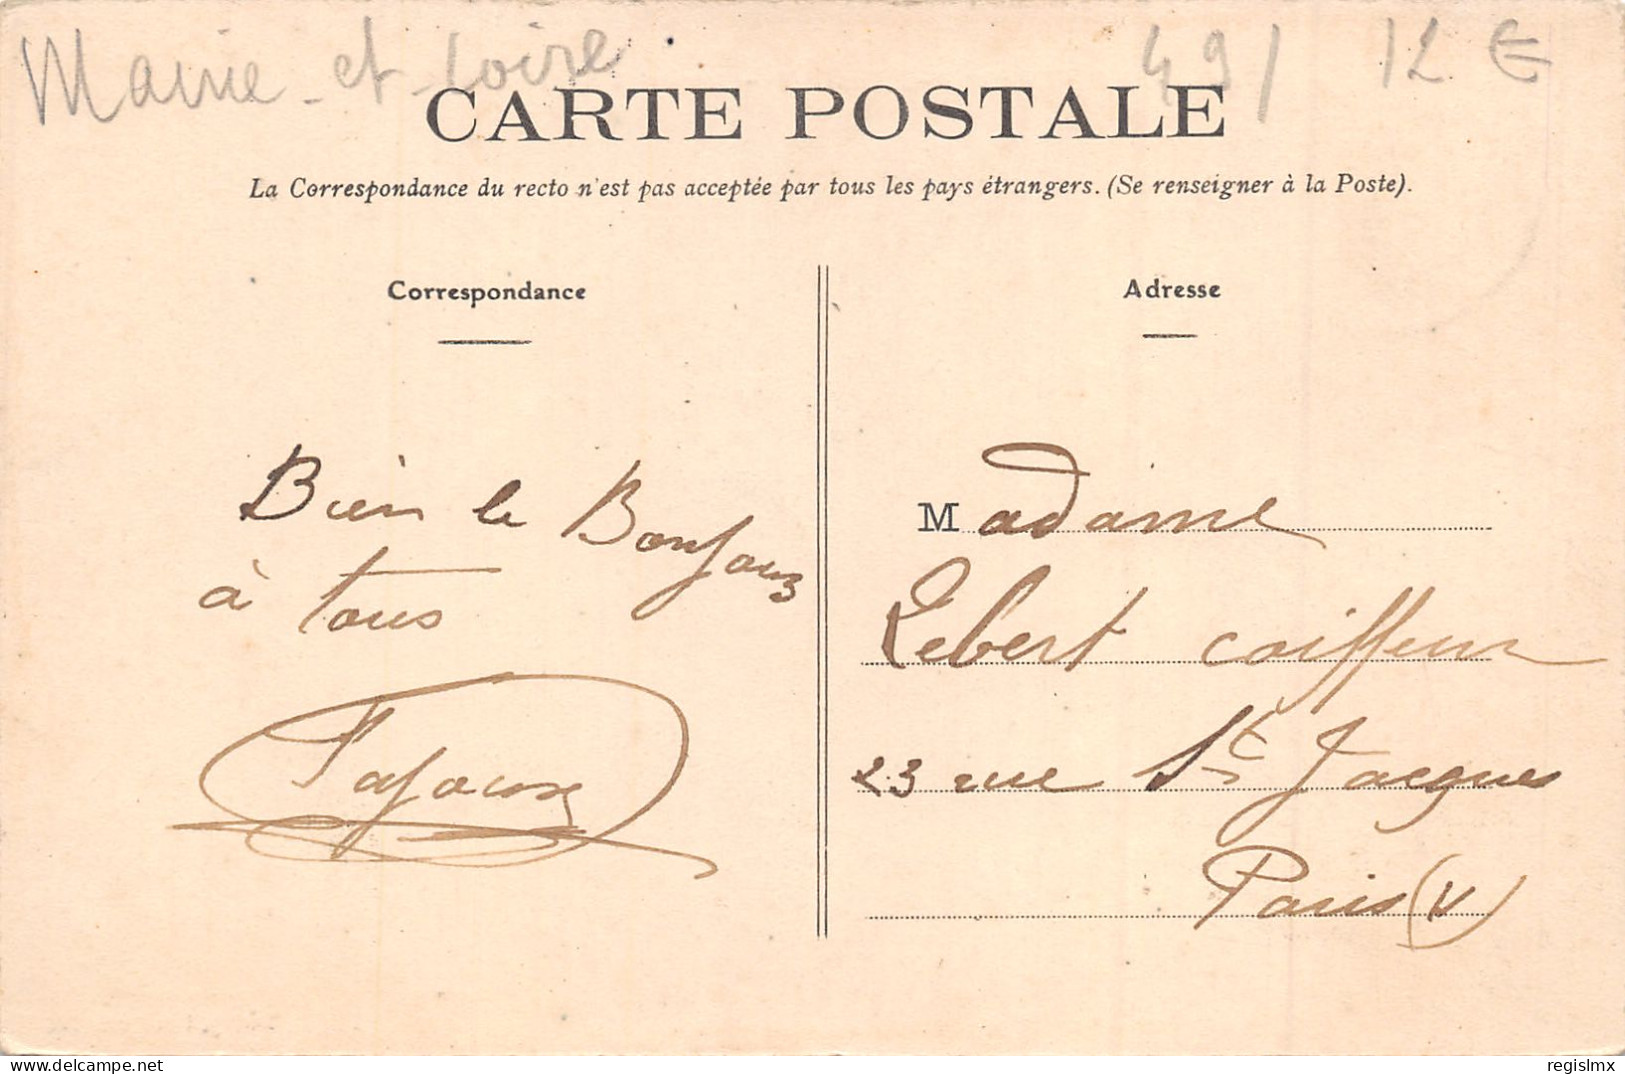 Maine-et-Loire 49/ 12 €
CARTE POSTALE
La Correspondance du recto n'est pas acceptée par tous les pays étrangers. (Se renseigner à la Poste).
Correspondance
Bien le Bonjour
à tous
Adresse
Madame
Lebert coiffeur
23 rue St Jacques
Paris (V)
delcampe.net
regislmx